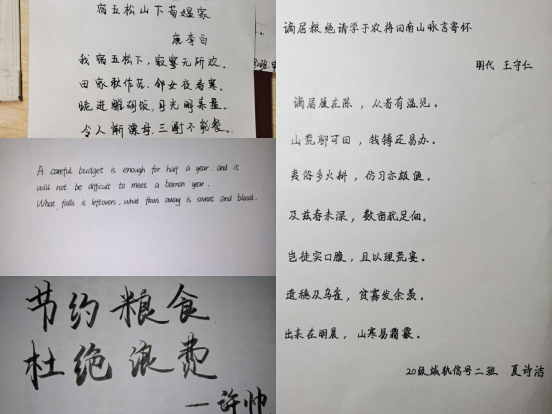 宿五松山下荀媪家
唐李白
我宿五松下，寂寥无所欢。
田家秋作苦，邻女夜舂寒。
跪进雕胡饭，月光明素盘。
令人惭漂母，三谢不能餐。
A careful budget is enough for half a year, and it
will not be difficult to meet a barren year.
What falls is leftovers, what flows away is sweat and blood.
节约粮食
杜绝浪费
—许帅
谪居粮绝请学于农将田南山咏言寄怀
明代 王守仁
谪居屡在陈，从者有愠见。
山荒聊可田，钱镈还易办。
夷俗多火耕，仿习亦颇便。
及兹春未深，数亩犹足佃。
岂徒实口腹，且以理荒宴。
遗穗及鸟雀，贫寡发余羡。
出耒在明晨，山寒易霜霰。
20级城轨信号二班 夏诗洁